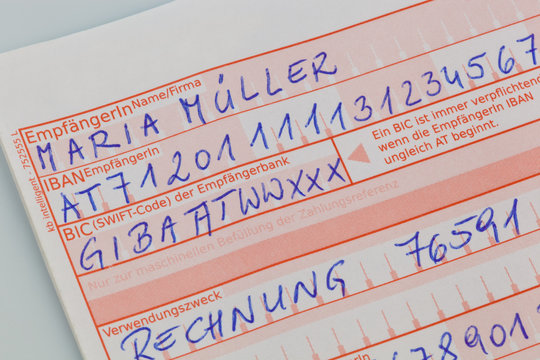 EmpfängerIn Name/Firma
MARIA MÜLLER
IBAN EmpfängerIn
AT71201 11113 1234567
BIC (SWIFT-Code) der Empfängerbank
GIBAATWWXXX
Ein BIC ist immer verpflichtend
wenn die EmpfängerIn IBAN
ungleich AT beginnt.
Nur zur maschinellen Befüllung der Zahlungsreferenz
Verwendungszweck
RECHNUNG 76591
kb intelligent - 7525555